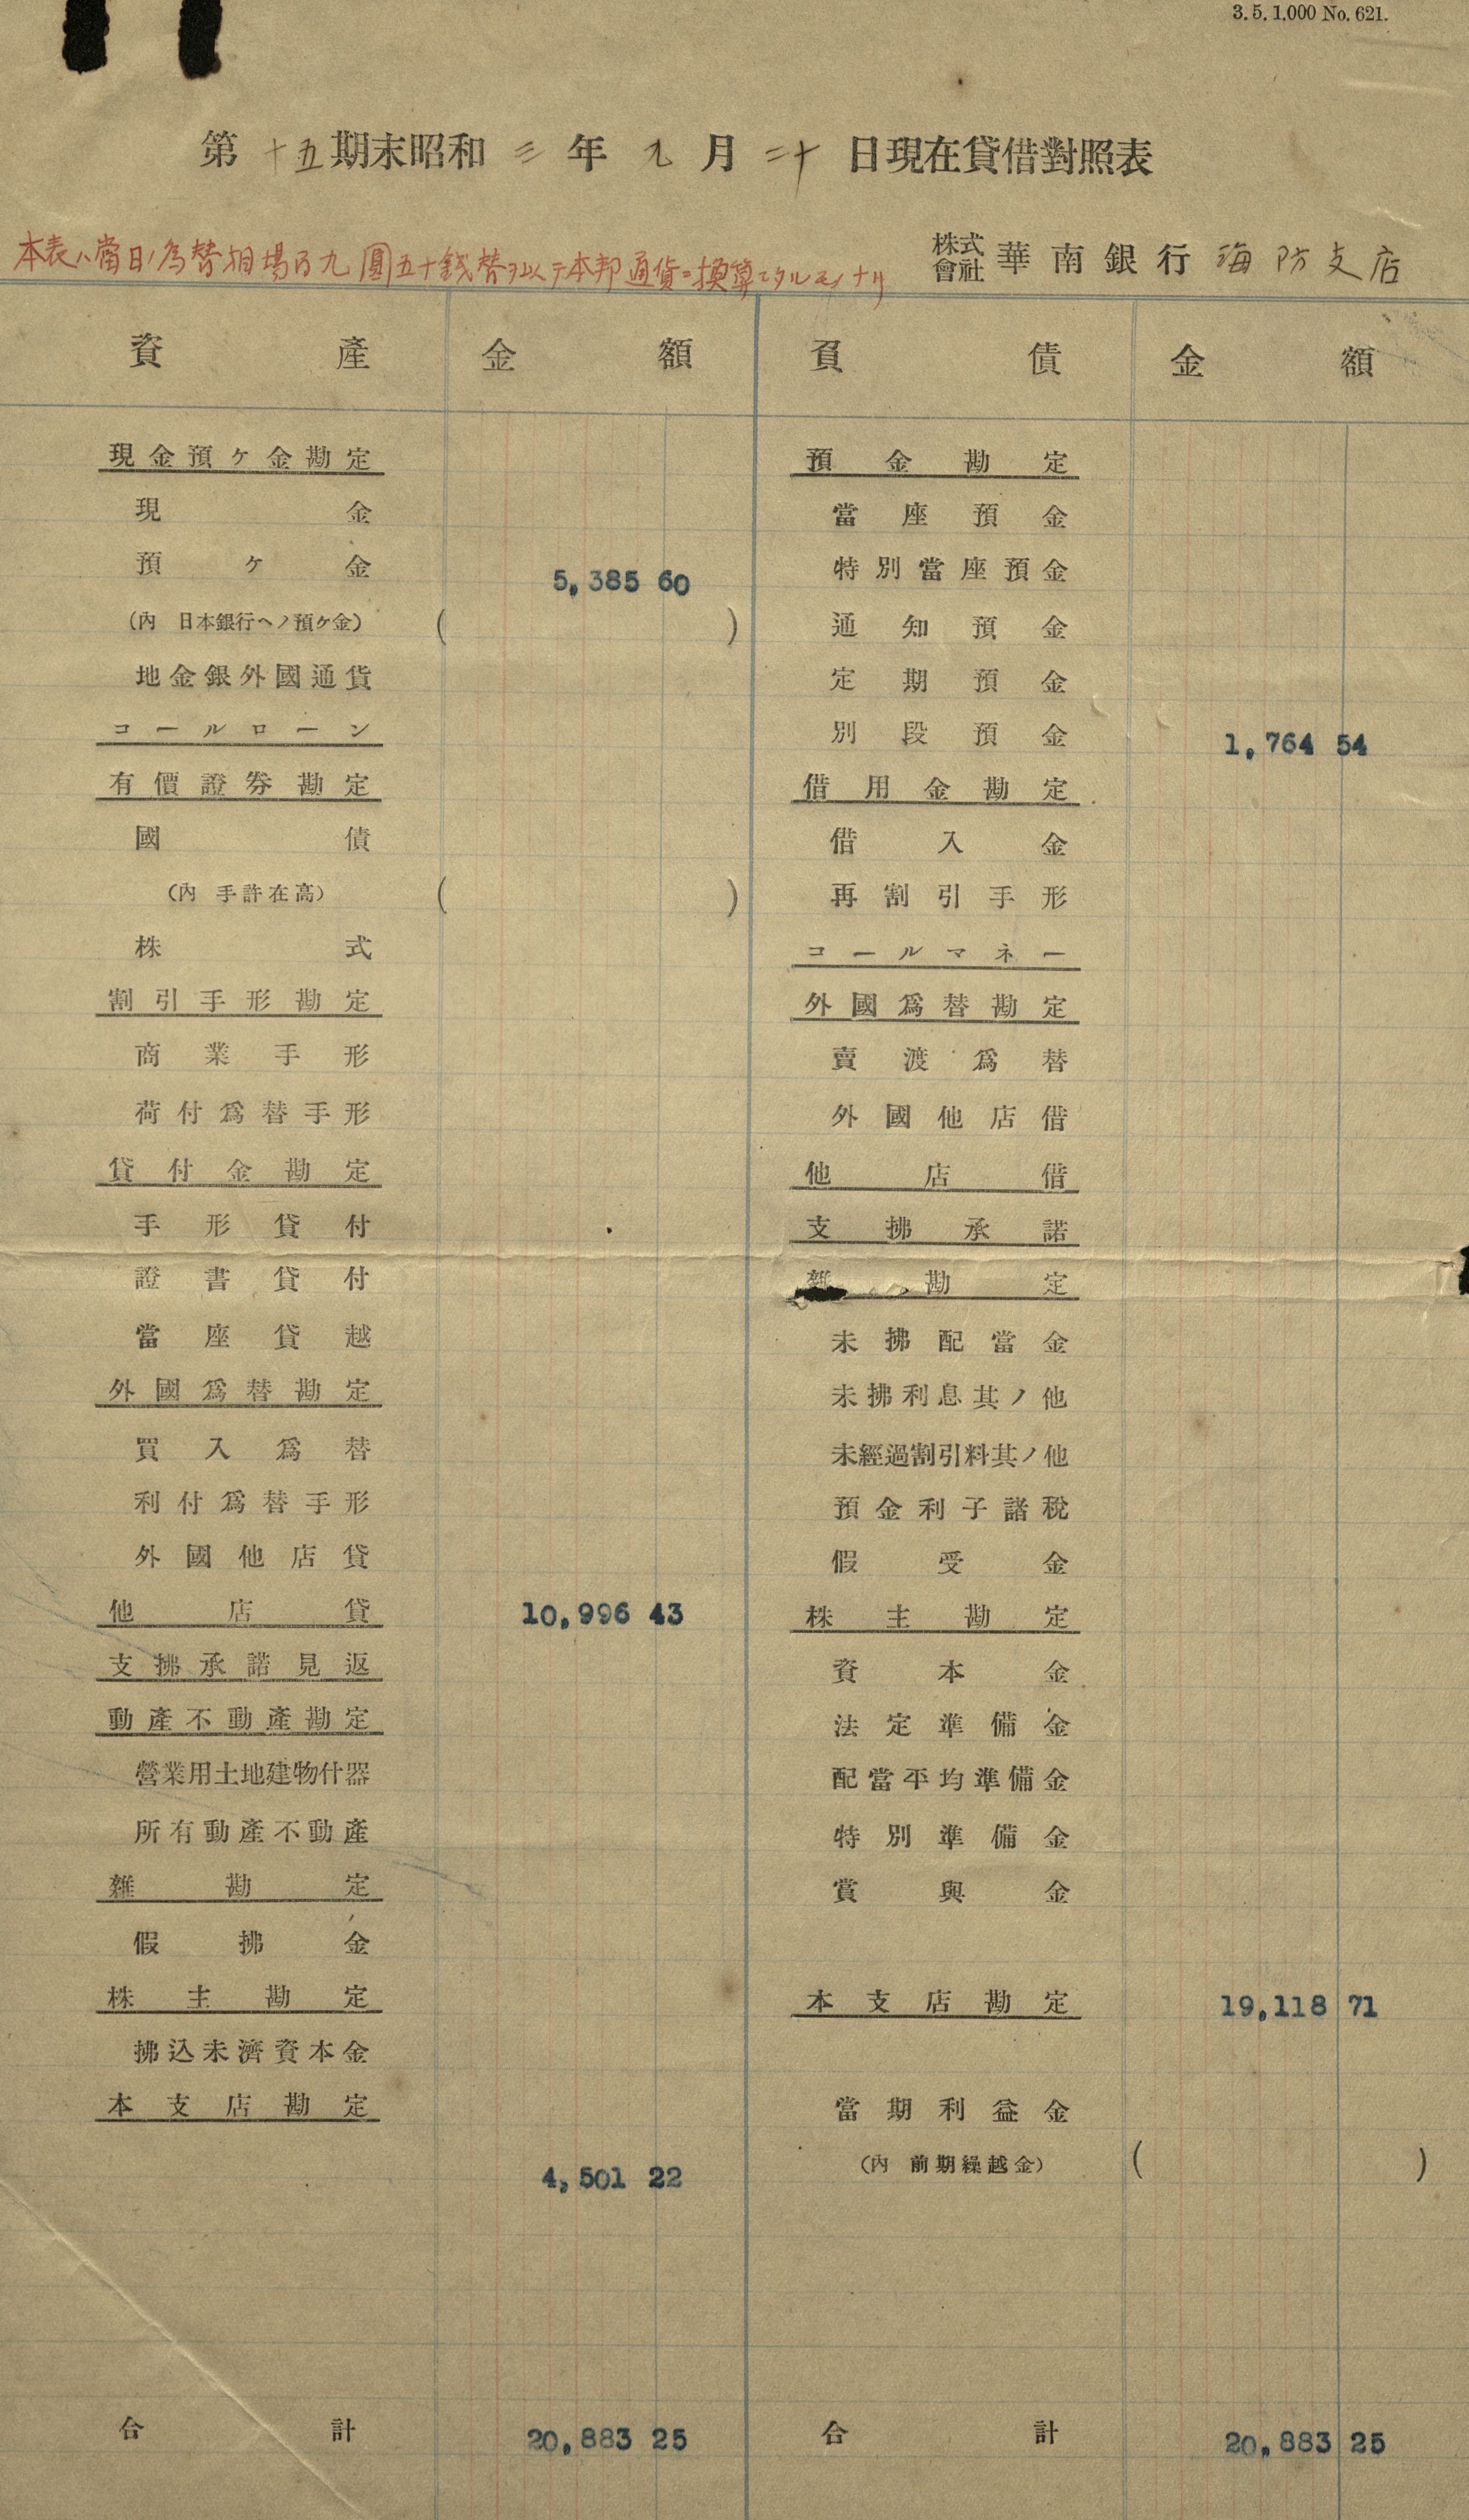 3.5.1,000 No.621.
第十五期末昭和三年九月二十日現在貸借對照表
本表ハ當日ノ為替相場百九圓五十錢替ヲ以テ本邦通貨ニ換算シタルモノナリ
株式會社 華南銀行 海防支店
資產 金額 負債 金額
現金預ケ金勘定
現金
預ケ金 5,385 60
(內 日本銀行ヘノ預ケ金) ( )
地金銀外國通貨
コールローン
有價證券勘定
國債
(內 手許在高) ( )
株式
割引手形勘定
商業手形
荷付爲替手形
貸付金勘定
手形貸付
證書貸付
當座貸越
外國爲替勘定
買入爲替
利付爲替手形
外國他店貸
他店貸 10,996 43
支拂承諾見返
動產不動產勘定
營業用土地建物什器
所有動產不動產
雜勘定
假拂金
株主勘定
拂込未濟資本金
本支店勘定
4,501 22
合計 20,883 25
預金勘定
當座預金
特別當座預金
通知預金
定期預金
別段預金 1,764 54
借用金勘定
借入金
再割引手形
コールマネー
外國爲替勘定
賣渡爲替
外國他店借
他店借
支拂承諾
雜勘定
未拂配當金
未拂利息其ノ他
未經過割引料其ノ他
預金利子諸稅
假受金
株主勘定
資本金
法定準備金
配當平均準備金
特別準備金
賞與金
本支店勘定 19,118 71
當期利益金
(內 前期繰越金) ( )
合計 20,883 25